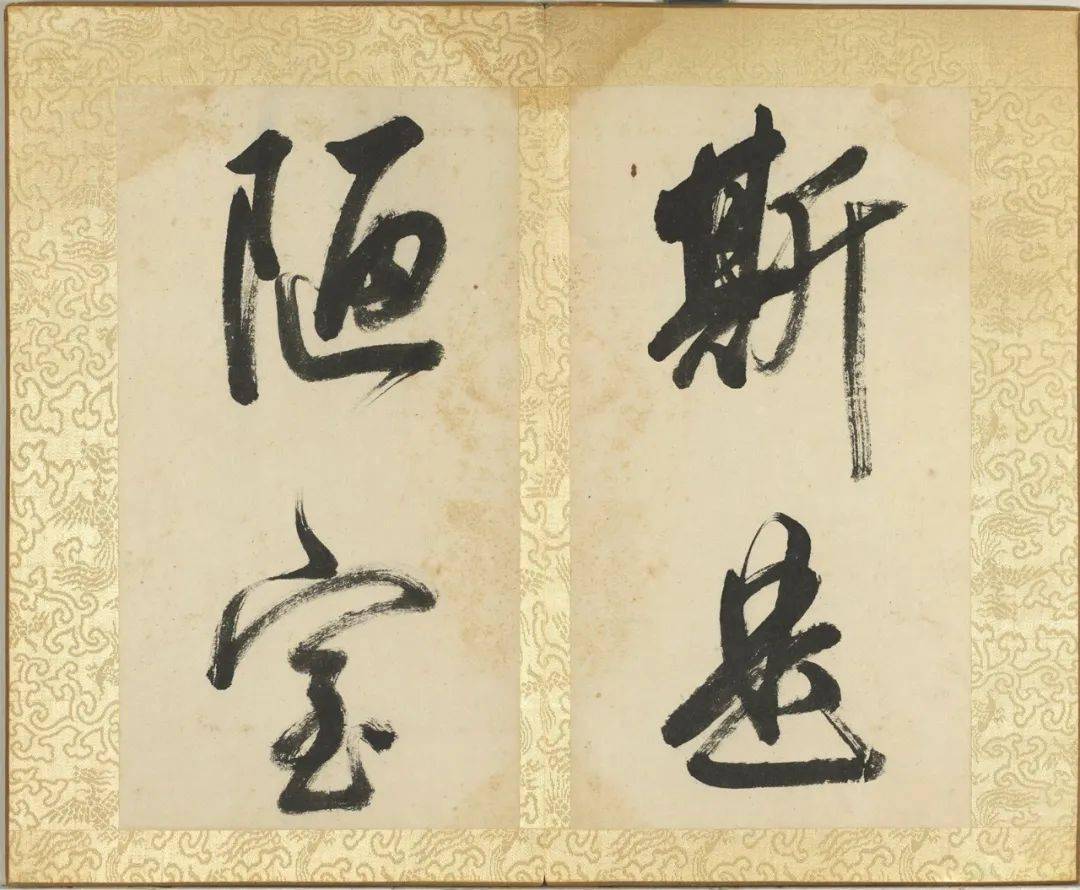 斯是
陋室